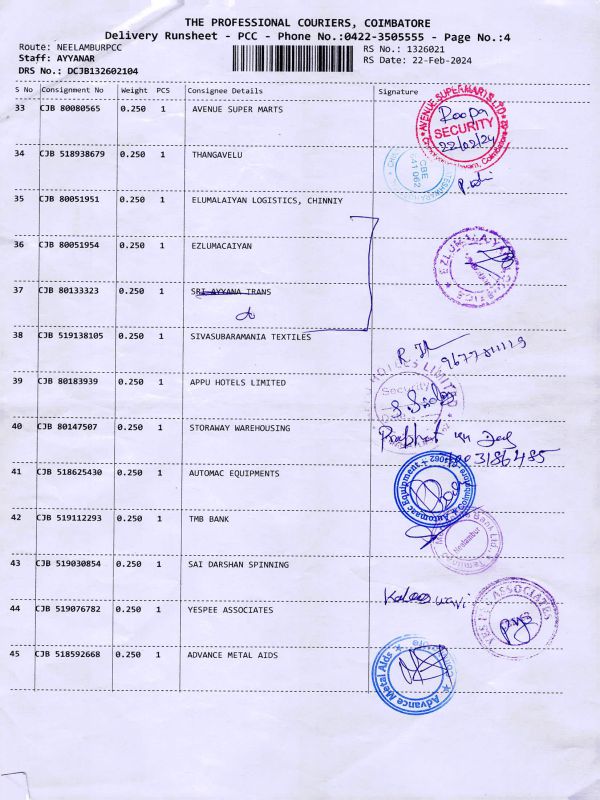 THE PROFESSIONAL COURIERS, COIMBATORE
Delivery Runsheet - PCC - Phone No.:0422-3505555 - Page No.:4
Route: NEELAMBURPCC
RS No.: 1326021
Staff: AYYANAR
RS Date: 22-Feb-2024
DRS No.: DCJB132602104
S No Consignment No Weight PCS Consignee Details Signature
33 CJB 80080565 0.250 1 AVENUE SUPER MARTS
AVENUE SUPERMARTS LTD
Roopa
SECURITY
22/02/24
34 CJB 518938679 0.250 1 THANGAVELU
CBE
641 062
35 CJB 80051951 0.250 1 ELUMALAIYAN LOGISTICS, CHINNIY
36 CJB 80051954 0.250 1 EZLUMACAIYAN
37 CJB 80133323 0.250 1 SRI AYYANA TRANS
38 CJB 519138105 0.250 1 SIVASUBARAMANIA TEXTILES
39 CJB 80183939 0.250 1 APPU HOTELS LIMITED
HOTELS LIMITED
Security
40 CJB 80147507 0.250 1 STORAWAY WAREHOUSING
Prabhat
41 CJB 518625430 0.250 1 AUTOMAC EQUIPMENTS
Automac Equipment
42 CJB 519112293 0.250 1 TMB BANK
Bank Ltd.
Neelambur
43 CJB 519030854 0.250 1 SAI DARSHAN SPINNING
44 CJB 519076782 0.250 1 YESPEE ASSOCIATES
ASSOCIATES
45 CJB 518592668 0.250 1 ADVANCE METAL AIDS
Advance Metal Aids